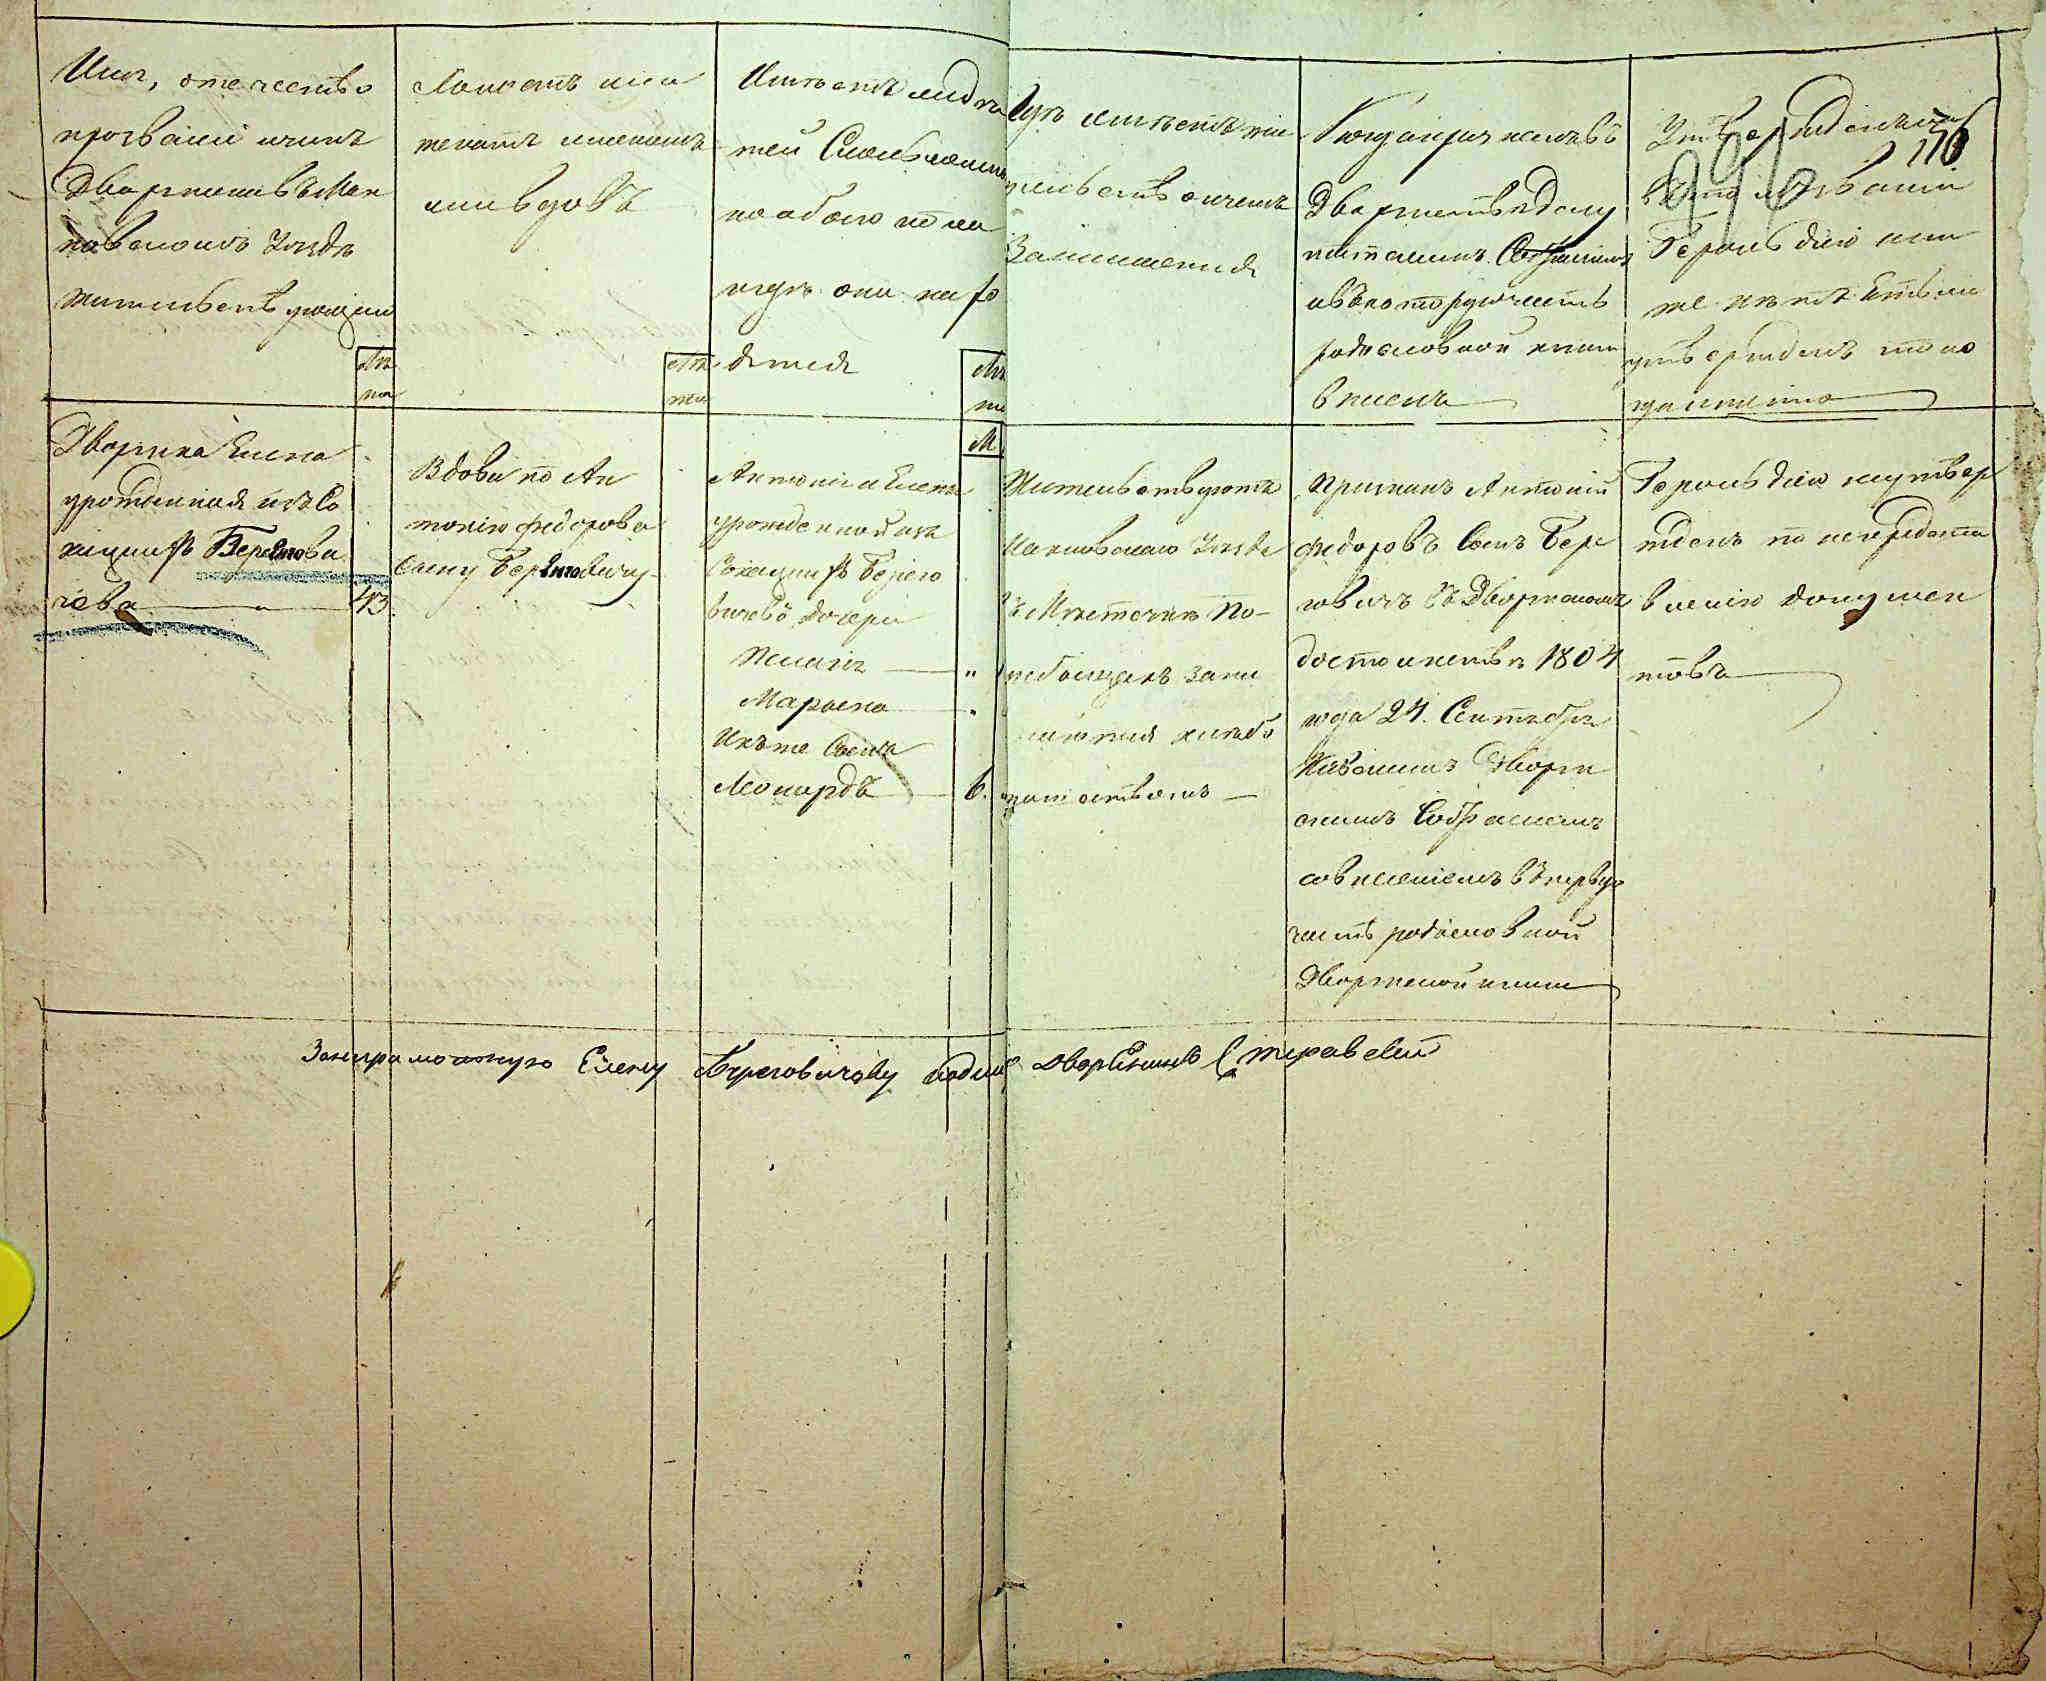 Имя, отечество
прозваніе и чинъ
Дворянина въ Мах
новскомъ Уездѣ
жительствующаго
Лѣ
та
Холостъ или
женатъ или
или вдовъ
Лѣ
та
Имѣетъ ли дѣ
тей Сколько
по обоего пола
и гдѣ они нахо
дятся
Лѣ
та
М.
Гдѣ имѣетъ жи
тельство и чемъ
Занимается
Когда и признанъ въ
Дворянствѣ Депу
татскимъ Собраніемъ
и въ которую часть
родословной книги
вписанъ
Утвержденъ ли
въ
Герольдіею или
же нѣтъ Если
утвержденъ то ко
116
Дворянка Елена
урожденная изъ Со
хацкихъ Берегови
чева
43
Вдова по Ан
тонію Федорова
Сыну Береговичу
Антонія и Елены
урожденной изъ
Сохацкихъ Берего
вичевъ дочери
Марьяна
Ихъ же Сынъ
Леонардъ
6.
Жительствуютъ
Махновскаго Уезда
въ Мѣстечкѣ По-
гребищахъ зани
маются хлѣбо
пашествомъ
Признанъ Антоній
Федоровъ Сынъ Бере
говичъ въ Дворянскомъ
достоинствѣ 1804
года 24. Сентября
Кіевскимъ Дворян
скимъ Собраніемъ
со внесеніемъ въ первую
часть родословной
Дворянской книги
Герольдіею не утвер
жденъ по непредста
вленію докумен
товъ
За неграмотную Елену Береговичову подписалъ Дворянинъ